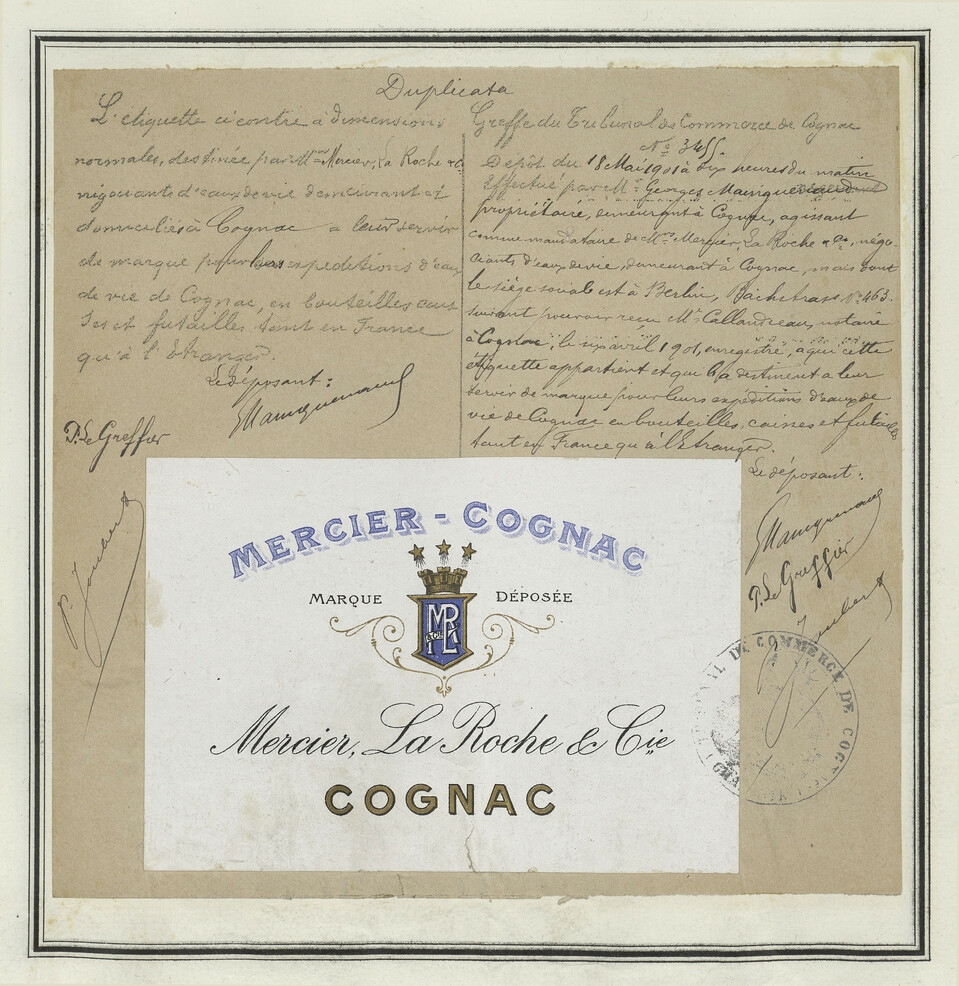 Duplicata
L'étiquette ci contre à dimensions
normales, destinée par Mrs Mercier, La Roche & Cie
négociants d'eaux de vie demeurant et
domiciliés à Cognac à leur servir
de marque pour leurs expéditions d'eau
de vie de Cognac, en bouteilles cais
ses et futailles tant en France
qu'à l'Etranger.
Le déposant:
P. Le Greffier
P. Joubert
Greffe du Tribunal de Commerce de Cognac
No 3455.
Depôt du 18 Mai 1901 à dix heures du matin
Effectué par Mr Georges
propriétaire, demeurant à Cognac, agissant
comme mandataire de Mrs Mercier, La Roche & Cie, négo-
ciants d'eaux de vie, demeurant à Cognac, mais dont
le siège social est à Berlin, No 463.
suivant pouvoir reçu Me Callandreau, notaire
à Cognac, le six avril 1901, enregistré, à qui cette
étiquette appartient et qui la destinent a leur
servir de marque pour leurs expéditions d'eaux de
vie de Cognac en bouteilles, caisses et futailles
tant en France qu'à l'Etranger.
Le déposant:
P. Le Greffier
Joubert
MERCIER - COGNAC
MARQUE DÉPOSÉE
MRL
& Cie
Mercier, La Roche & Cie
COGNAC
TRIBUNAL DE COMMERCE DE COGNAC